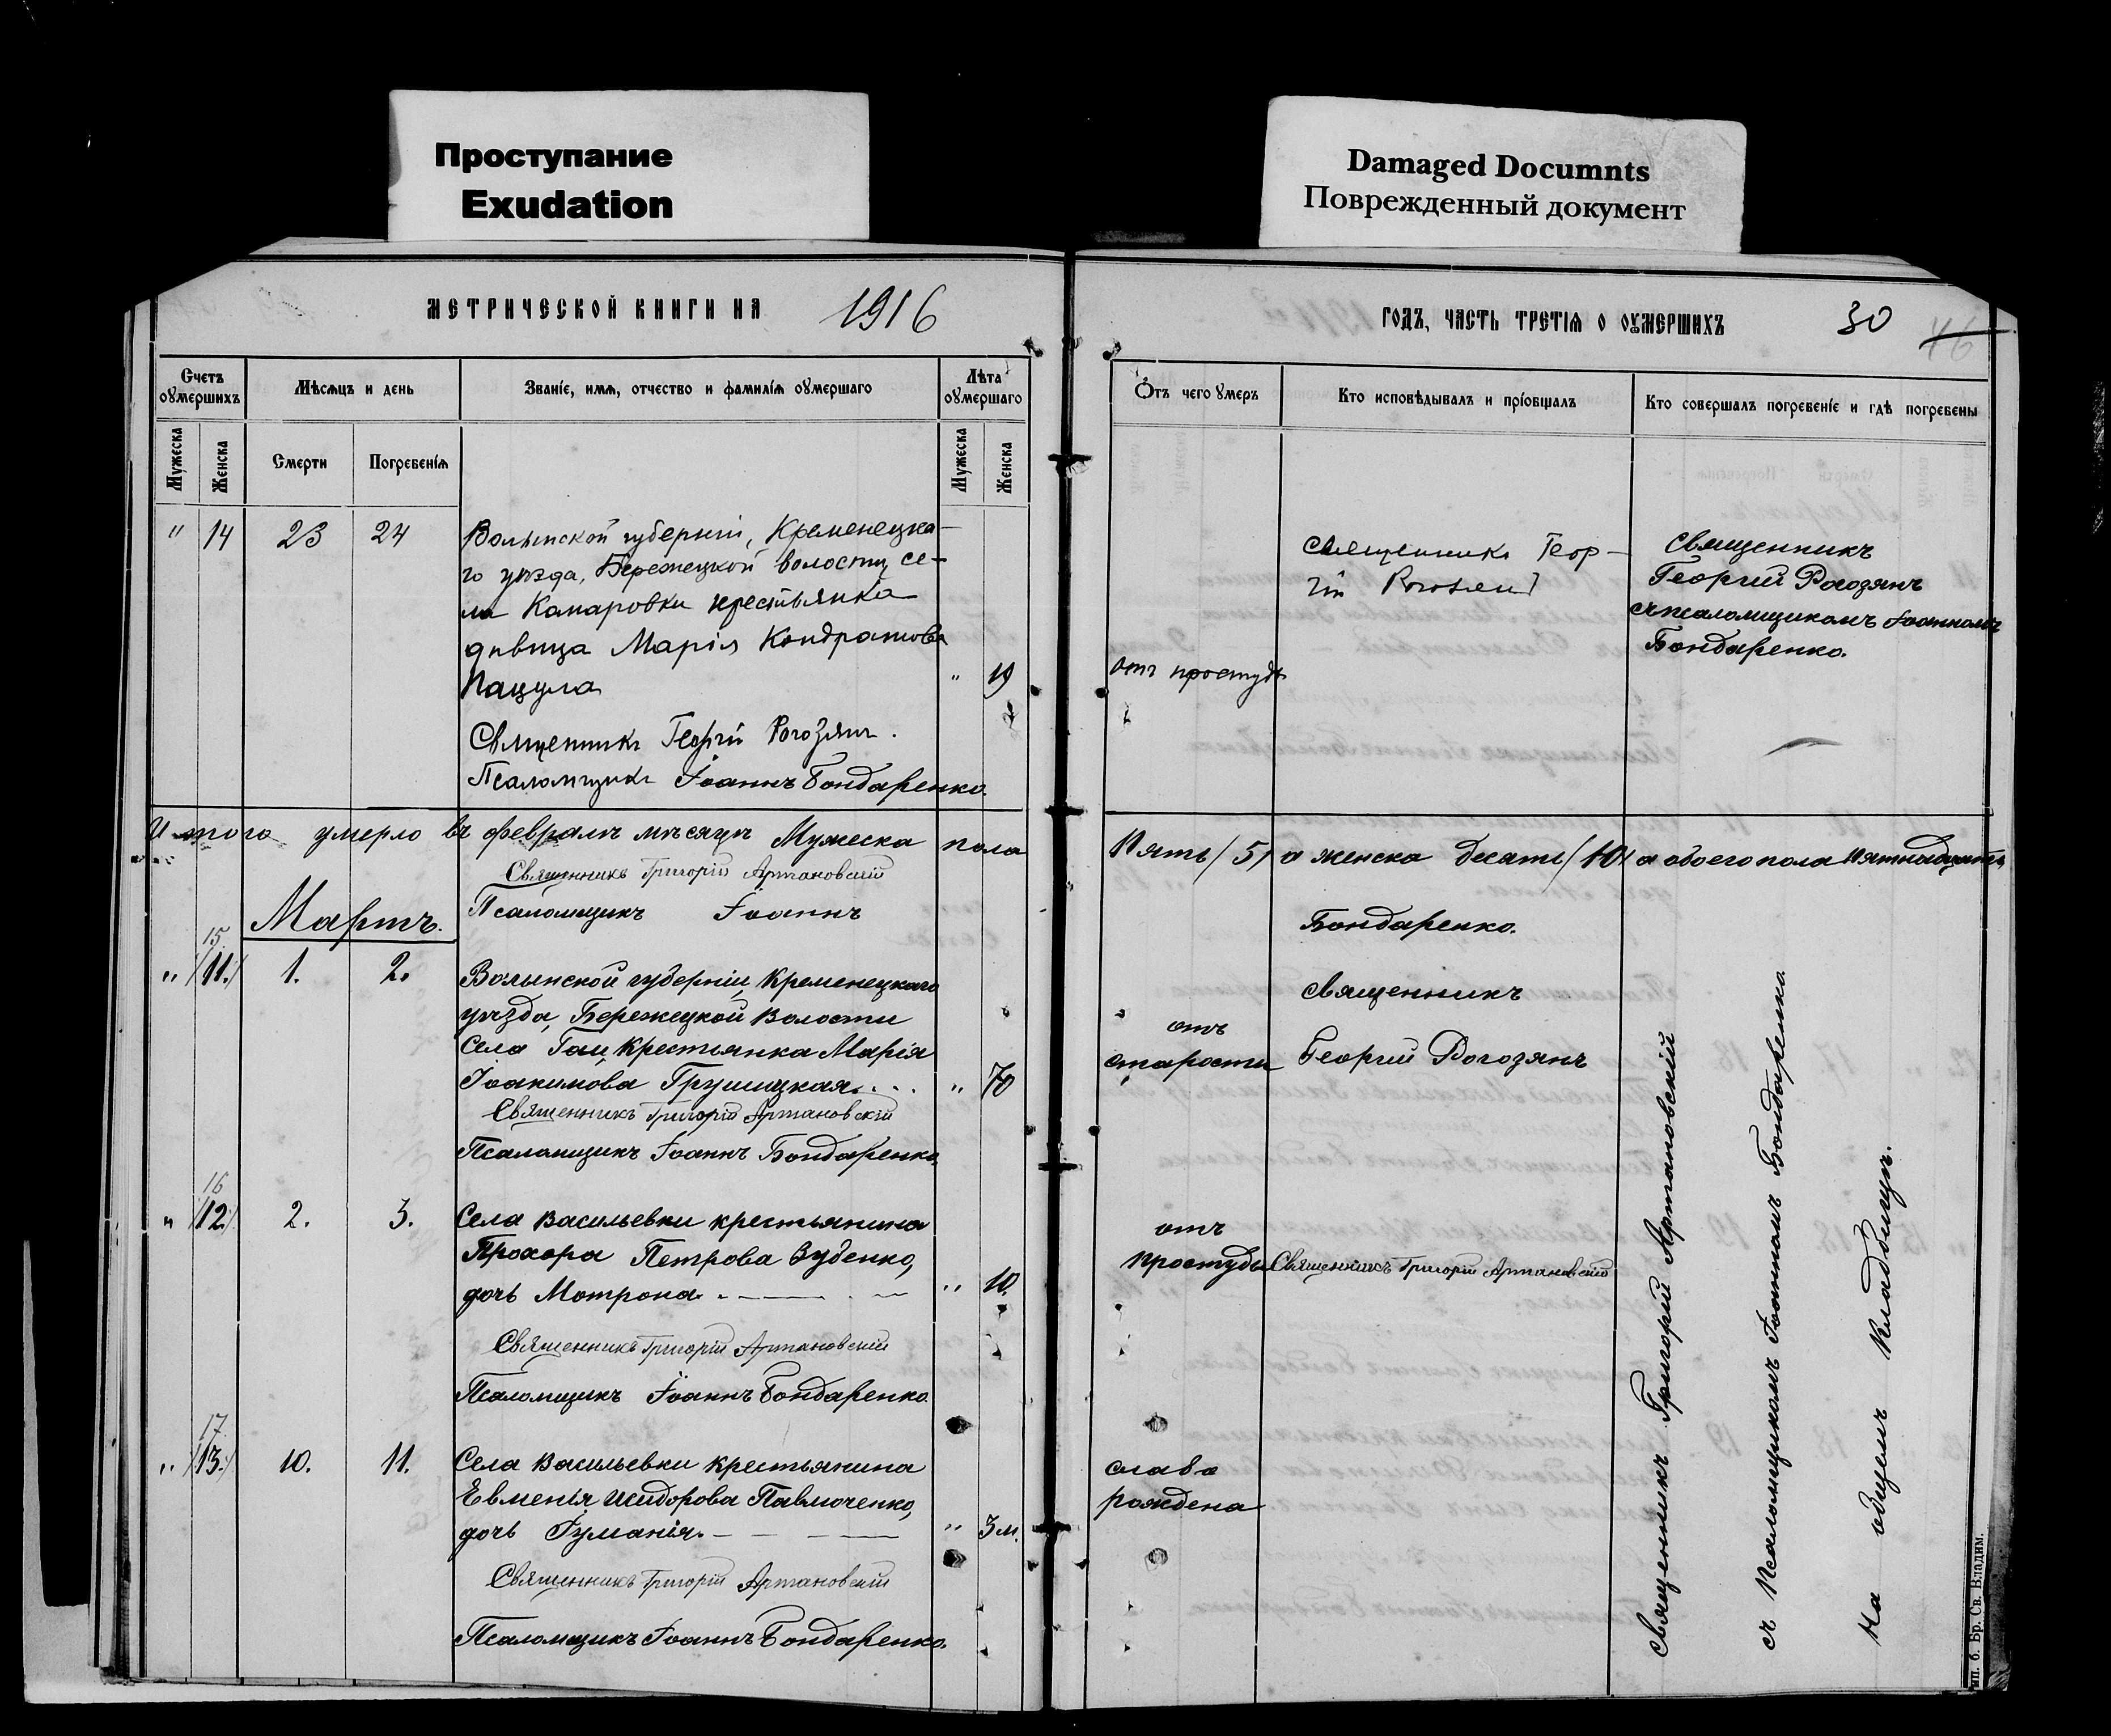 Проступание
Exudation
Damaged Documnts
Поврежденный документ
МЕТРИЧЕСКОЙ КНИГИ НА 1916
Счетъ оумершихъ
Мѣсяцъ и день
Званіе, имя, отчество и фамилія оумершаго
Лѣта оумершаго
Мужеска
Женска
Смерти
Погребенія
Мужеска
Женска
" 14 23 24 Волынской губерніи, Кременецка-
го уѣзда, Бережецкой волости, се-
ла Комаровки крестьянка
дѣвица Марія Кондратова
Пацула " 19
Священникъ Георгій Рогозянъ.
Псаломщикъ Іоаннъ Бондаренко.
Итого умерло въ февралѣ мѣсяцѣ Мужеска пола
Священникъ Григорій Артановскій
Псаломщикъ Іоаннъ
Мартъ.
15
" /11./ 1. 2. Волынской губерніи, Кременецкаго
уѣзда, Бережецкой волости
села Гаи, крестьянка Марія
Іоакимова Грушицкая... " 70
Священникъ Григорій Артановскій
Псаломщикъ Іоаннъ Бондаренко.
16
" /12./ 2. 3. Села Васильевки крестьянина
Прохора Петрова Зубенко,
дочь Мотрона. " 10.
Священникъ Григорій Артановскій
Псаломщикъ Іоаннъ Бондаренко.
17
" /13./ 10. 11. Села Васильевки крестьянина
Евменія Исидорова Павлюченко,
дочь Гуманія. " 3 м.
Священникъ Григорій Артановскій
Псаломщикъ Іоаннъ Бондаренко.
ГОДЪ, ЧАСТЬ ТРЕТІЯ О ОУМЕРШИХЪ 30 46
Отъ чего умеръ
Кто исповѣдывалъ и пріобщалъ
Кто совершалъ погребеніе и гдѣ погребены
отъ простуды
Священникъ Геор-
гій
Священникъ
Георгий Рогозянъ
съ псаломщикомъ Іоанномъ
Бондаренко.
Пять /5/ а женска десять /10/ а обоего пола пятнадцать
Бондаренко.
отъ
старости
священникъ
Георгий Рогозянъ
отъ
простуды
Священникъ Григорій Артановскій
слабо
рождена
Священникъ Григорій Артановскій
съ Псаломщикомъ Іоанномъ Бондаренко
на общемъ кладбищѣ.
тип. б. Бр. Св. Владим.